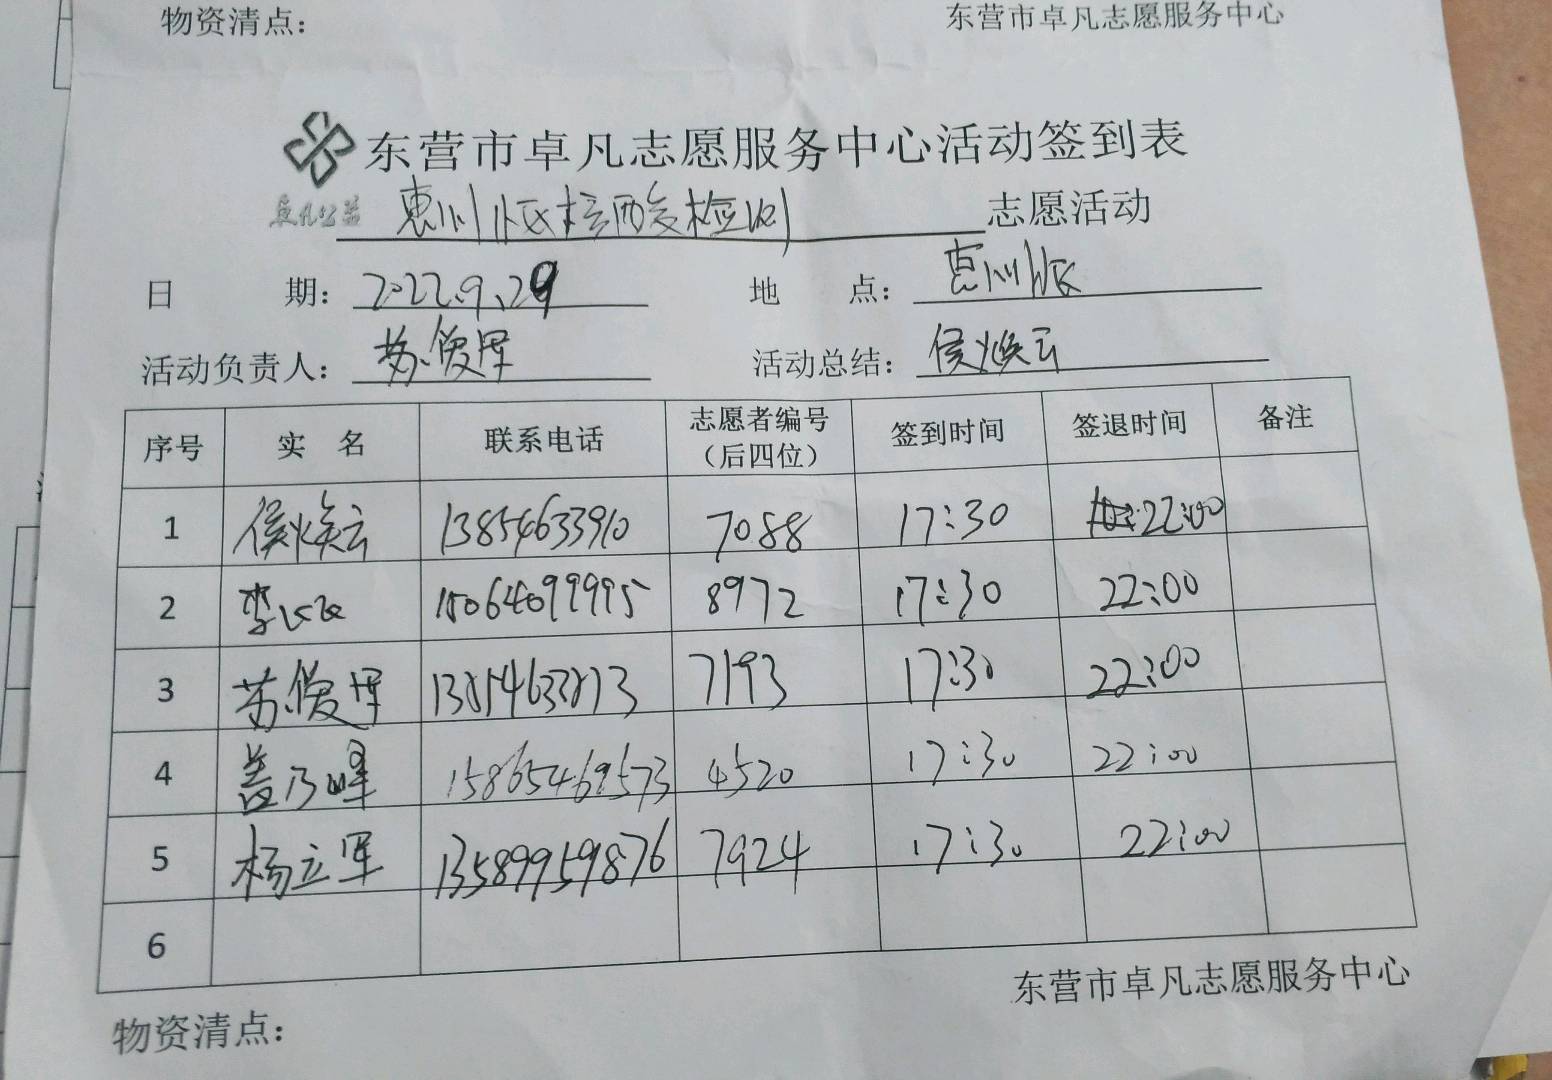 物资清点：
东营市卓凡志愿服务中心
东营市卓凡志愿服务中心活动签到表
卓凡公益 惠州版核酸检测 志愿活动
日 期：2022.9.29 地 点：惠州版
活动负责人：苏俊军 活动总结：侯焕云
序号 实 名 联系电话 志愿者编号（后四位） 签到时间 签退时间 备注
1 侯焕云 13854633910 7088 17:30 22:00
2 李 15064699995 8972 17:30 22:00
3 苏俊军 7193 17:30 22:00
4 盖乃峰 15865469573 4520 17:30 22:00
5 杨立军 13589959876 7924 17:30 22:00
6
东营市卓凡志愿服务中心
物资清点：